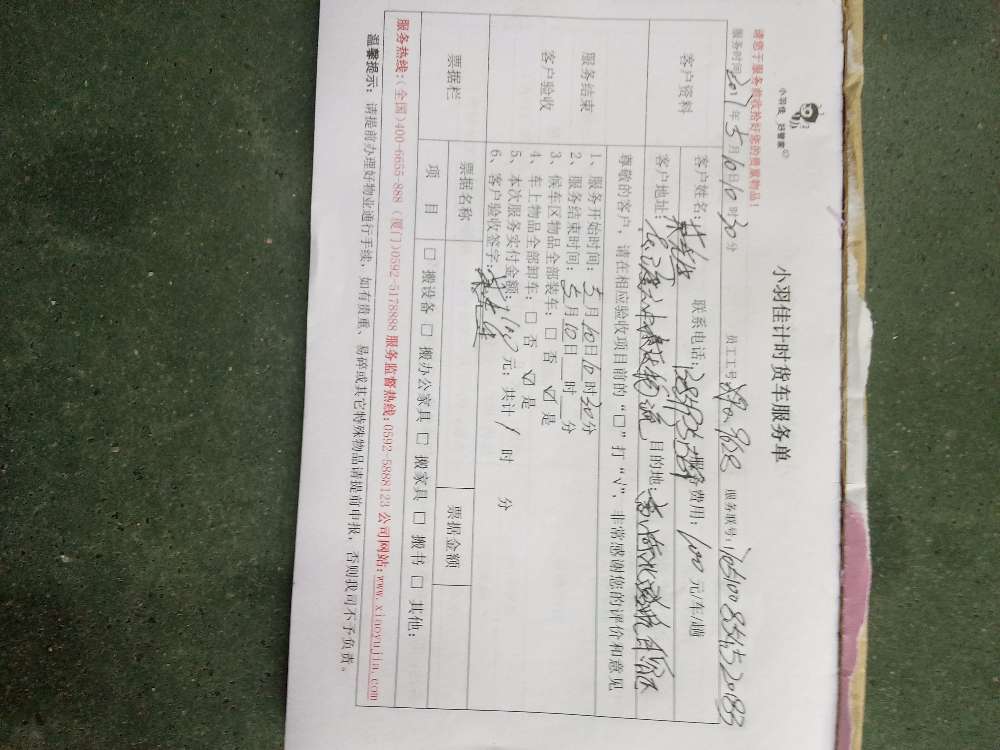 小羽佳 好管家
小羽佳计时货车服务单
请您于服务前收拾好您的贵重物品!
服务时间:2017年5月10日10时30分 员工工号: 服务联号:
客户资料
客户姓名: 联系电话: 服务费用:100元/车/趟
客户地址: 目的地:
服务结束
客户验收
尊敬的客户,请在相应验收项目前的“□”打“√”,非常感谢您的评价和意见
1、服务开始时间:5月10日10时30分
2、服务结束时间:5月10日 时 分
3、候车区物品全部装车:□ 否 ☑ 是
4、车上物品全部卸车:□ 否 ☑ 是
5、本次服务实付金额: 元;共计 时 分
6、客户验收签字:
票据栏
票据名称 票据金额
项 目 □ 搬设备 □ 搬办公家具 □ 搬家具 □ 搬书 □ 其他:
服务热线:(全国)400-6655-888 (厦门)0592-5178888 服务监督热线:0592-5888123 公司网站:www.xiaoyujia.com
温馨提示:请提前办理好物业通行手续,如有贵重、易碎或其它特殊物品请提前申报,否则我司不予负责。